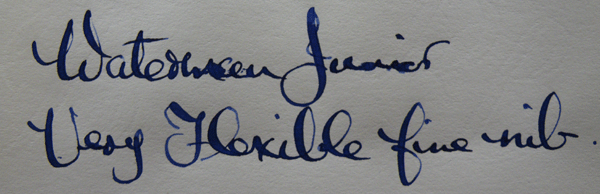 Waterman Junior
Very Flexible fine nib.